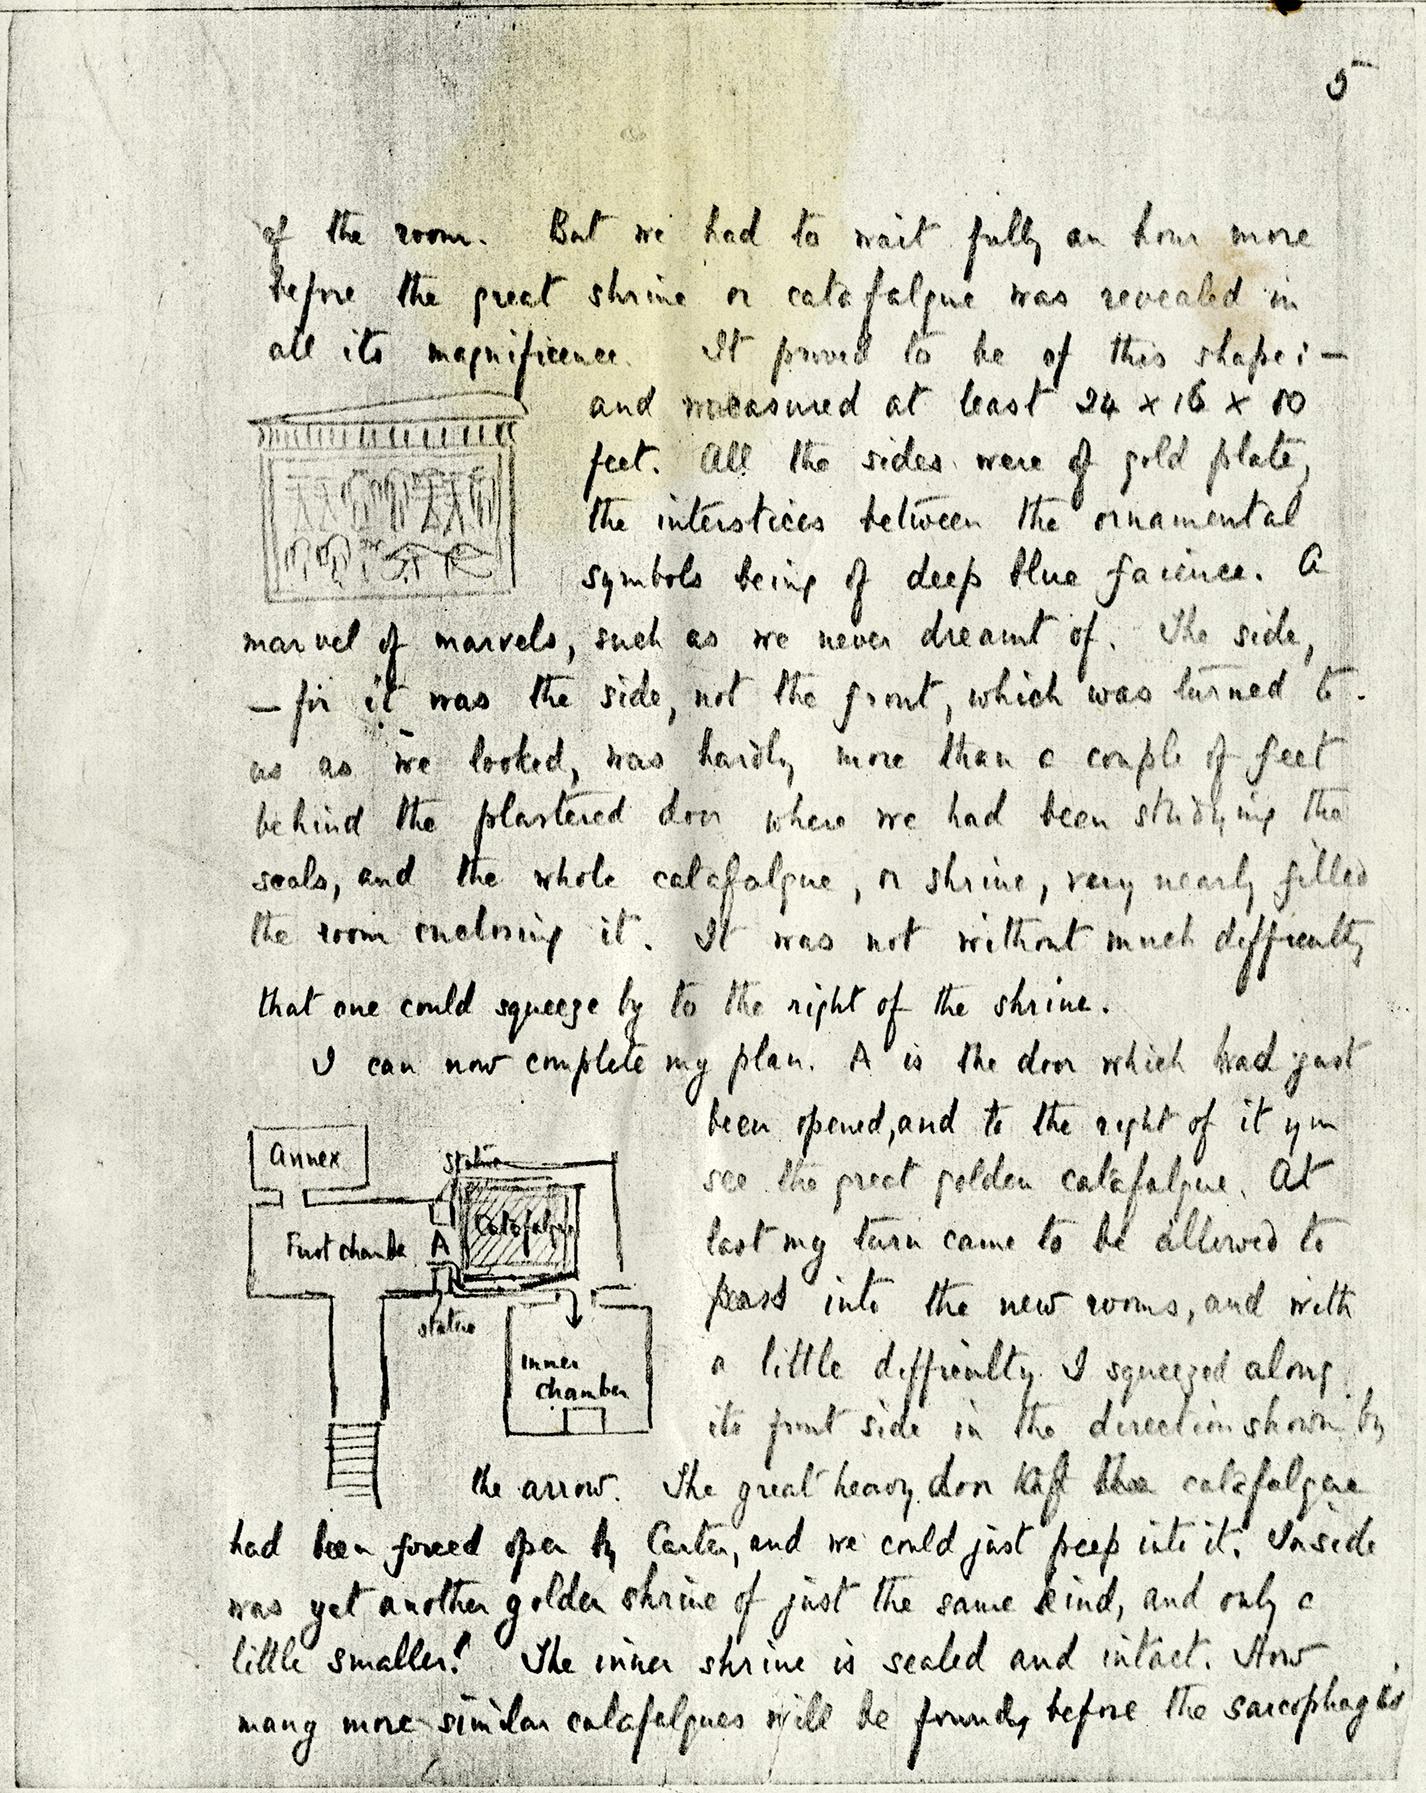 5
of the room. But we had to wait fully an hour more
before the great shrine or catafalque was revealed in
all its magnificence. It proved to be of this shape:—
and measured at least 24 x 16 x 10
feet. All the sides were of gold plate,
the interstices between the ornamental
symbols being of deep blue faience. A
marvel of marvels, such as we never dreamt of. The side,
— for it was the side, not the front, which was turned to
us as we looked, was hardly more than a couple of feet
behind the plastered door where we had been studying the
seals, and the whole catafalque, or shrine, very nearly filled
the room enclosing it. It was not without much difficulty
that one could squeeze by to the right of the shrine.
I can now complete my plan. A is the door which had just
been opened, and to the right of it you
see the great golden catafalque. At
last my turn came to be allowed to
pass into the new rooms, and with
a little difficulty I squeezed along
its front side in the direction shown by
Annex
statue
Catafalque
First chamber
A
statue
Inner
chamber
the arrow. The great heavy door of the catafalque
had been forced open by Carter, and we could just peep into it. Inside
was yet another golden shrine of just the same kind, and only a
little smaller! The inner shrine is sealed and intact. How
many more similar catafalques will be found, before the sarcophagus